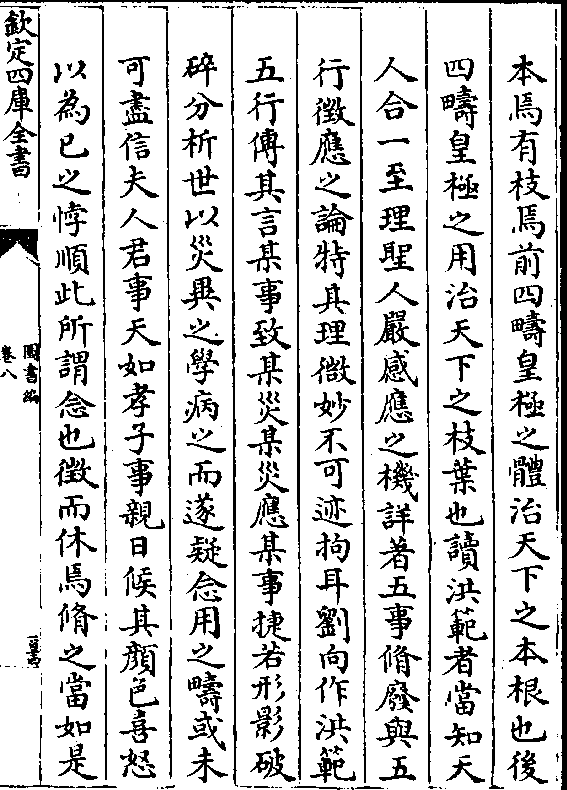 本焉有枝焉前四疇皇極之體治天下之本根也後
四疇皇極之用治天下之枝葉也讀洪範者當知天
人合一至理聖人嚴感應之機詳著五事脩廢與五
行徴應之論特其理微妙不可迹拘耳劉向作洪範
五行傳其言某事致某災某災應某事捷若形影破
碎分析世以災異之學病之而遂疑念用之疇或未
可盡信夫人君事天如孝子事親日候其顔色喜怒
以為已之悖順此所謂念也徴而休焉脩之當如是
欽定四庫全書
圖書編
卷八